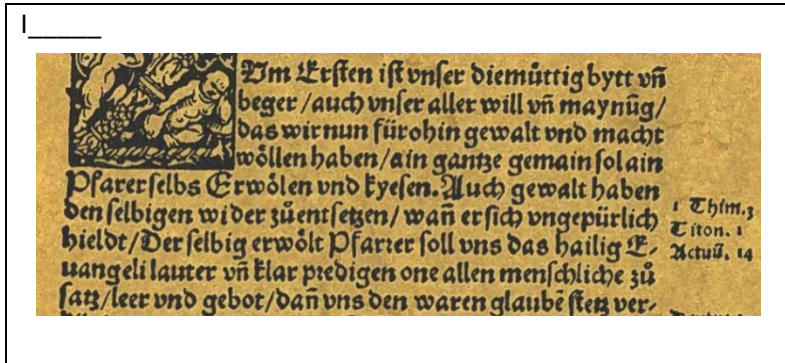 I_____
Um Ersten ist vnser diemüttig bytt vñ
beger/auch vnser aller will vñ maynũg/
das wir nun fürohin gewalt vnd macht
wöllen haben/ain gantze gemain sol ain
Pfarer selbs Erwölen vnd kyesen. Auch gewalt haben
den selbigen wider zůentsetzen/wañ er sich vngepürlich
hieldt/Der selbig erwölt Pfarrer soll vns das hailig E⸗
uangeli lauter vñ klar predigen one allen menschliche zů
satz/leer vnd gebot/dañ vns den waren glaubẽ stetz ver⸗
1 Thim. 3
Titon. 1
Actuũ. 14